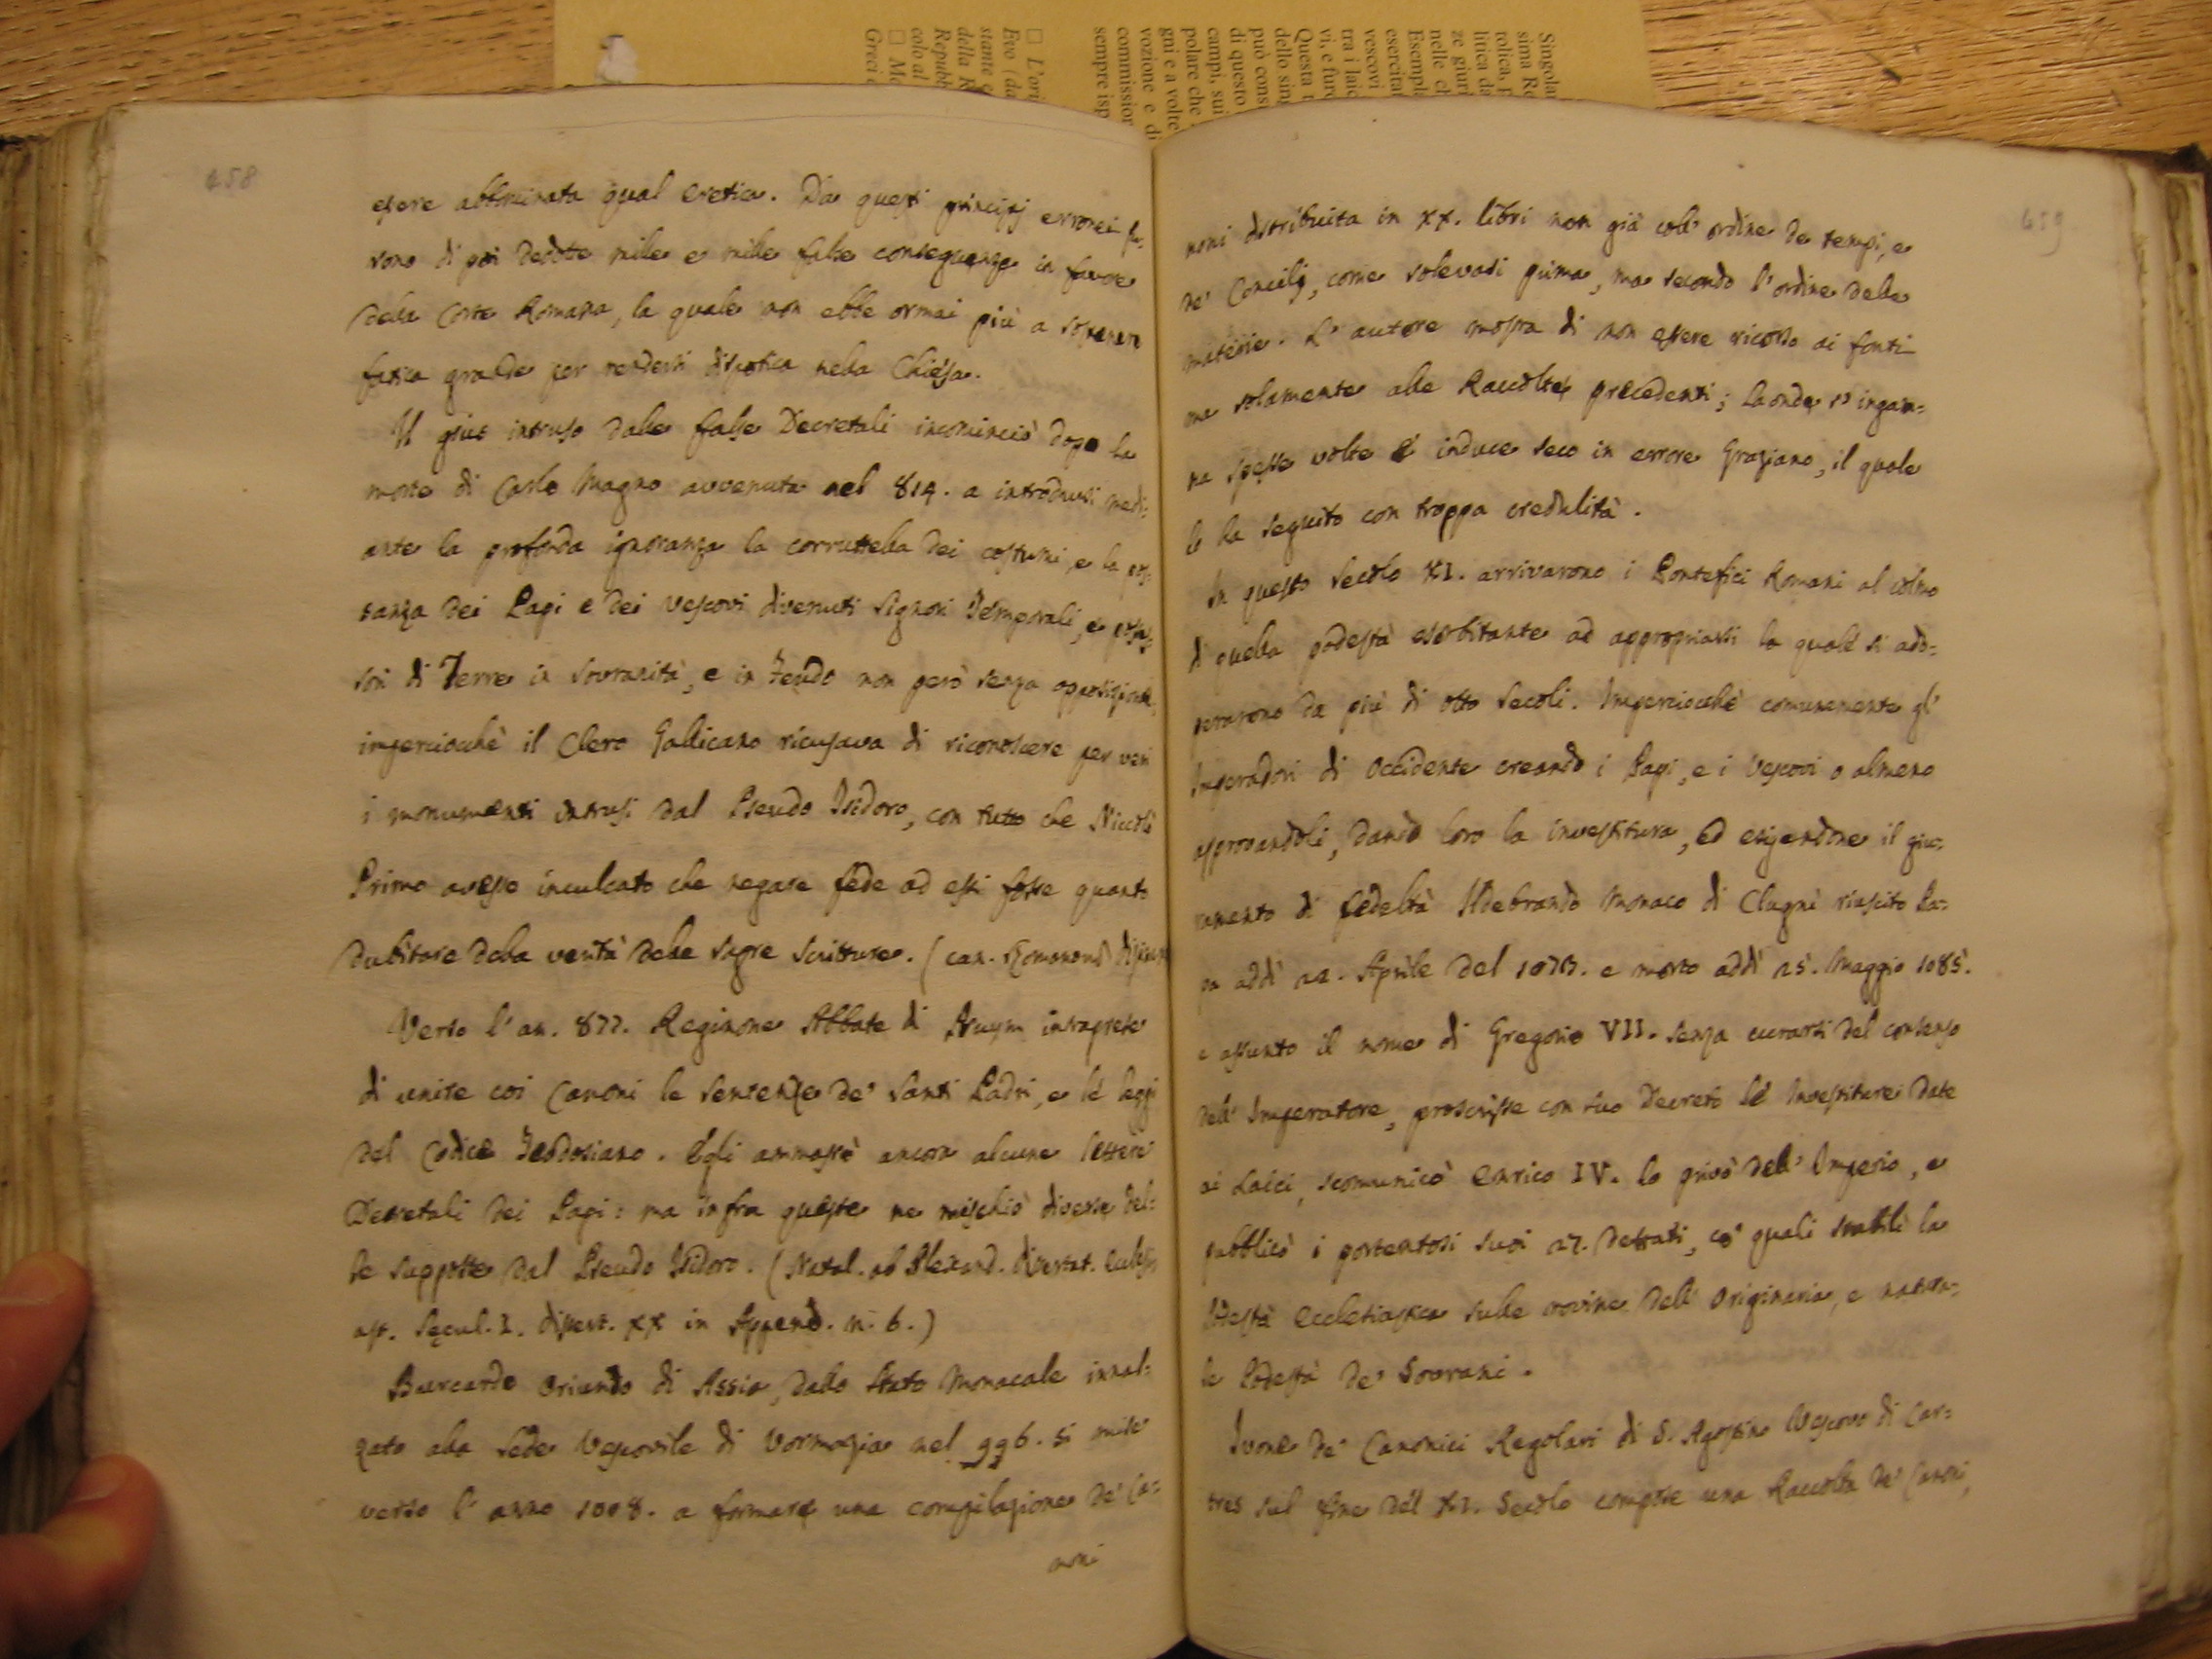 458
essere abbominata qual eretica. Da questi principj erronei fu-
rono di poi dedotte mille e mille false conseguenze in favore
della Corte Romana, la quale non ebbe ormai più a sostenere
fatica grande per rendersi dispotica nella Chiesa.
Il gius intruso dalle false Decretali incominciò dopo la
morte di Carlo Magno avvenuta nel 814. a introdursi medi:
ante la profonda ignoranza la corruttella dei costumi, e la pos:
sanza dei Papi e dei Vescovi divenuti Signori Temporali, e posses:
sori di Terre in Sovranità, e in Feudo non però senza opposizione,
imperciocchè il Clero Gallicano ricusava di riconoscere per veri
i monumenti intrusi dal Pseudo Isidoro, con tutto che Niccolò
Primo avesse inculcato che negare fede ad essi fosse quanto
dubitare della verità delle sagre Scritture. (can.
Verso l'an. 877. Reginone Abbate di Pruym intraprese
di unire coi Canoni le Sentenze de' Santi Padri, e le leggi
del Codice Teodosiano. Egli ammassò ancora alcune lettere
Decretali dei Papi: ma infra queste ne mischiò diverse del:
le supposte dal Pseudo Isidoro. (Natal. ab Alexand. dissertat. Eccles:
ast. Secul. I. dissert. XX in Append. n. 6.)
Burcardo Oriundo di Assia, dallo Stato Monacale innal:
zato alla Sede Vescovile di Vormazia nel 996. si mise
verso l'anno 1008. a formare una compilazione de' Ca:
noni
459
noni distribuita in XX. libri non già coll' ordine de tempi, e
de' Concilj, come solevasi prima, ma secondo l'ordine delle
materie. L'autore mostra di non essere ricorso ai fonti
ma solamente alle Raccolte precedenti; laonde s'ingan:
na spesse volte e induce seco in errore Graziano, il quale
lo ha seguito con troppa credulità.
In questo Secolo XI. arrivarono i Pontefici Romani al colmo
di quella podestà esorbitante ad appropriarsi la quale si ado:
perarono da più di otto Secoli. Imperciocchè comunemente gl'
Imperadori di Occidente creando i Papi, e i Vescovi o almeno
approvandoli, dando loro la investitura, ed esigendone il giu:
ramento di fedeltà Ildebrando Monaco di Clugnì riuscito Pa:
pa addì 22. Aprile del 1073. e morto addì 25. Maggio 1085.
e assunto il nome di Gregorio VII. senza curarsi del consenso
dell' Imperatore, proscrisse con suo Decreto le Investiture date
ai Laici, scomunicò Enrico IV. lo privò dell' Imperio, e
pubblicò i portentosi suoi 27. Dettati, co' quali stabilì la
Podestà Ecclesiastica sulle rovine dell' Originaria, e natura:
le Podestà de' Sovrani.
Ivone de' Canonici Regolari di S. Agostino Vescovo di Car:
tres sul fine del XI. Secolo compose una Raccolta de' Canoni,